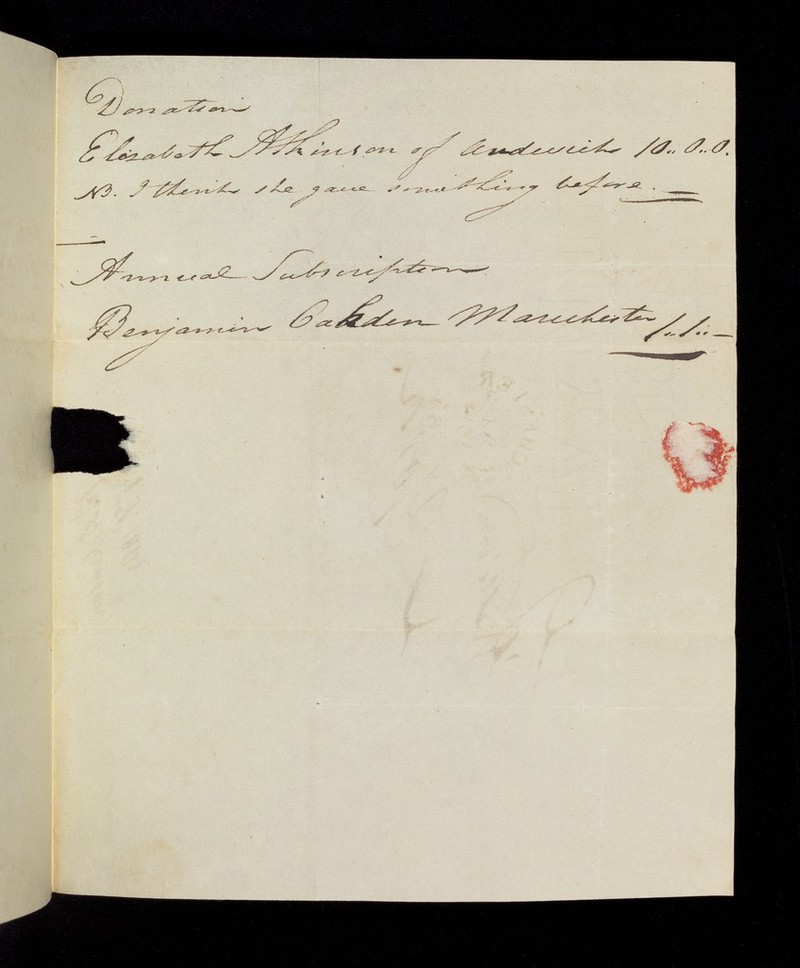 Donation
Elizabeth Atkinson of Andwich 10..0..0.
NB. I think she gave something before. —
Annual Subscription
Benjamin Oakden Manchester 1..1..—